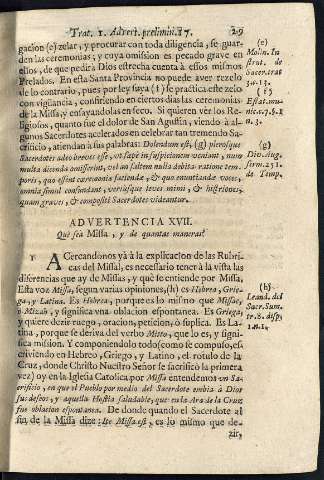 Trat. 1. Advert. prelimin. 17. 29
gacion (e) zelar, y procurar con toda diligencia, se guar-
den las ceremonias; y cuya omision es pecado grave en
ellos, de que pedirà Dios estrecha cuenta à estos mismos
Prelados. En esta Santa Provincia no puede aver rezelo
de lo contrario, pues por ley suya (f) se practica este zelo
con vigilancia, confiriendo en ciertos dias las ceremonias
de la Missa, y ensayandolas en seco. Si quieren ver los Re-
ligiosos, quanto fue el dolor de San Agustin, viendo à al-
gunos Sacerdotes acelerados en celebrar tan tremendo Sa-
crificio, atiendan à sus palabras: Dolendum est, (g) pierosque
Sacerdotes adeo breves esse, ut sæpe in suspitionem veniant, num
multa dicenda omiserint, vel an saltem nulla debita ratione tem-
poris, quo essent ceremonia faciendæ, & quo enuntiandæ voces,
omnia simul confundant, veriusque leves mimi, & histriones,
quam graves, & compositi Sacerdotes videantur.
(e)
Molin. In
strut. de
Sacer. trat
3. 15.
(f)
Estat. mu-
nic.
n. 3.
(g)
Div. Aug.
serm. 251.
de Temp.
ADVERTENCIA XVII.
Què sea Missa, y de quantas maneras?
1 ACercandonos yà à la explicacion de las Rubri-
cas del Missal, es necessario tener à la vista las
diferencias que ay de Missas, y què se entiende por Missa.
Esta voz Missa, segun varias opiniones, (h) es Hebrea, Grie-
ga, y Latina. Es Hebrea, porque es lo mismo que Missac,
ò Mizab, y significa vna oblacion espontanea. Es Griega,
y quiere dezir ruego, oracion, peticion, ò suplica. Es La-
tina, porque se deriva del verbo Mitto, que lo es, y signi-
fica mision. Y componiendolo todo (como se compuso, es-
criviendo en Hebreo, Griego, y Latino, el rotulo de la
Cruz, donde Christo Nuestro Señor se sacrificò la primera
vez) oy en la Iglesia Catolica por Missa entendemos un Sa-
crificio, en que el Pueblo por medio del Sacerdote embia à Dios
sus deseos, y aquella Hostia saludable, que en la Ara de la Cruz
fue oblacion espontanea. De donde quando el Sacerdote al
fin de la Missa dize: Ite Missa est, es lo mismo que de-
zir,
(h)
Leand. del
Sacr. Sum.
tr. 8. disp.